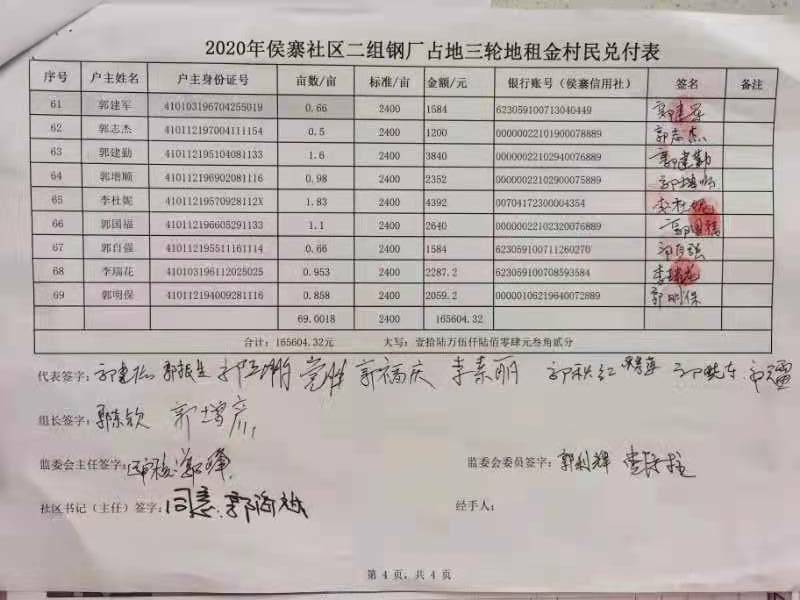 2020年侯寨社区二组钢厂占地三轮地租金村民兑付表
序号 户主姓名 户主身份证号 亩数/亩 标准/亩 金额/元 银行账号（侯寨信用社） 签名 备注
61 郭建军 410103196704255019 0.66 2400 1584 623059100713040449 郭建军
62 郭志杰 410112197004111154 0.5 2400 1200 00000022101900078889 郭志杰
63 郭建勤 410112195104081133 1.6 2400 3840 00000022102940076889 郭建勤
64 郭增顺 410112196902081116 0.98 2400 2352 00000022102900075889 郭增顺
65 李杜妮 41011219570928112X 1.83 2400 4392 00704172300004354 李杜妮
66 郭国福 410112196605291133 1.1 2400 2640 00000022102320076889 郭国福
67 郭自强 410112195511161114 0.66 2400 1584 623059100711260270 郭自强
68 李瑞花 410103196112025025 0.953 2400 2287.2 623059100708593584 李瑞花
69 郭明保 410112194009281116 0.858 2400 2059.2 00000106219640072889 郭明保
69.0018 2400 165604.32
合计：165604.32元 大写：壹拾陆万伍仟陆佰零肆元叁角贰分
代表签字： 郭福庆 李素丽
组长签字： 郭增彦
监委会主任签字： 监委会委员签字：郭利辉
社区书记（主任）签字：同意 郭海 经手人：
第 4 页，共 4 页